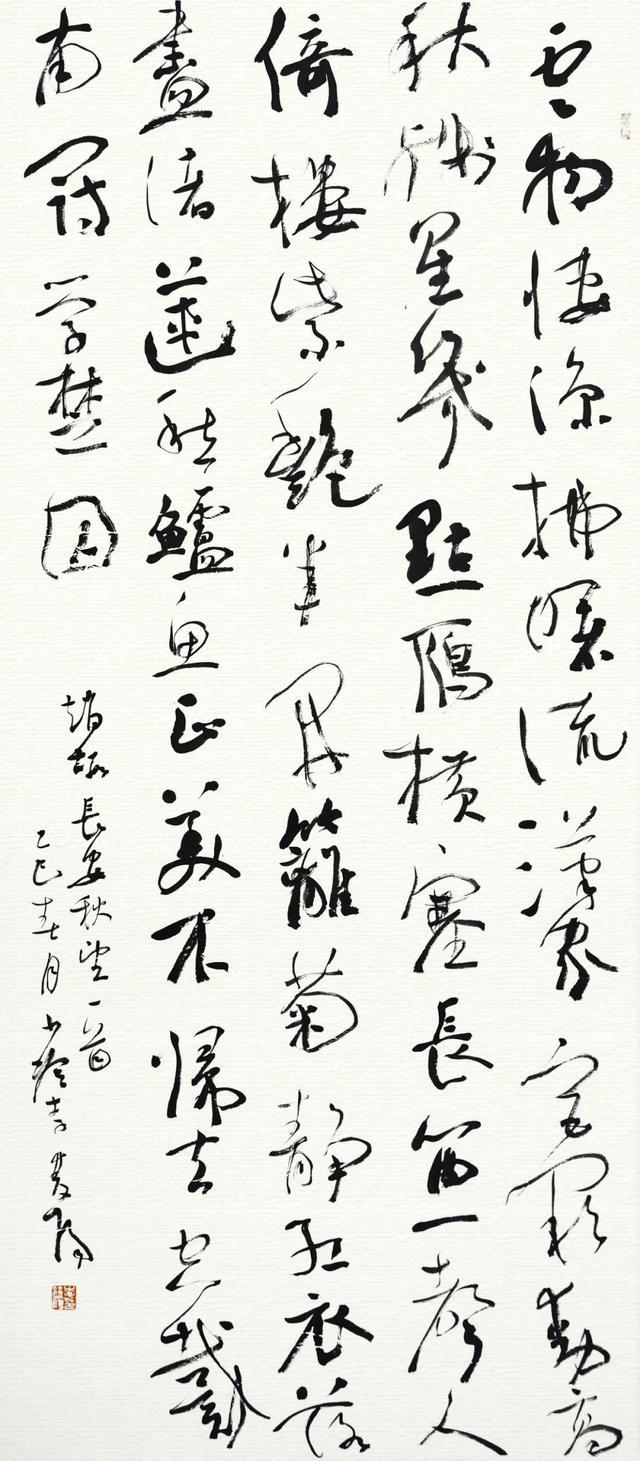 雲物悽涼拂曙流漢家宮闕動高
秋殘星幾點鴈橫塞長笛一聲人
倚樓紫艷半開籬菊靜紅衣落
盡渚蓮愁鱸魚正美不歸去空戴
南冠學楚囚
趙嘏長安秋望一首
乙巳春月